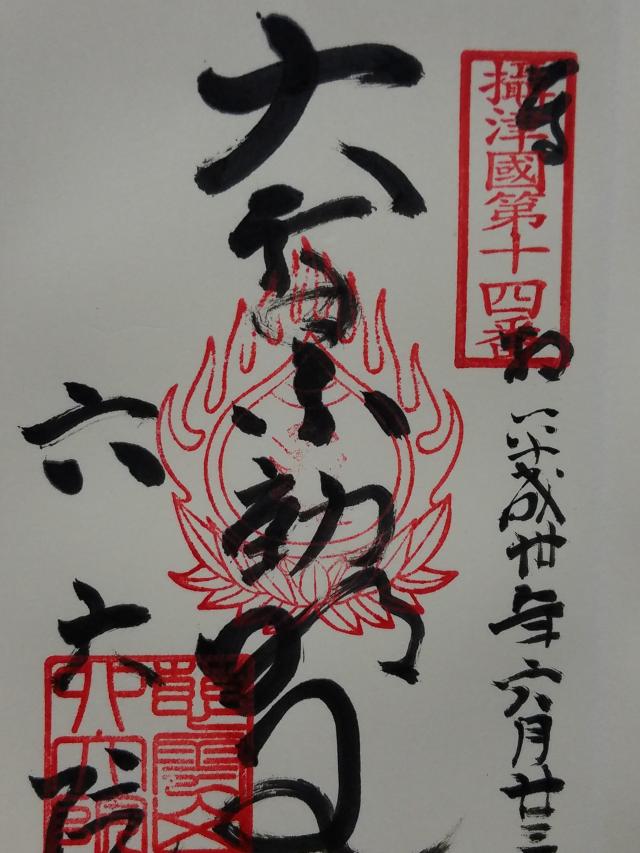 攝津國第十四番
平成廿年六月廿三
大聖不動明
六大院